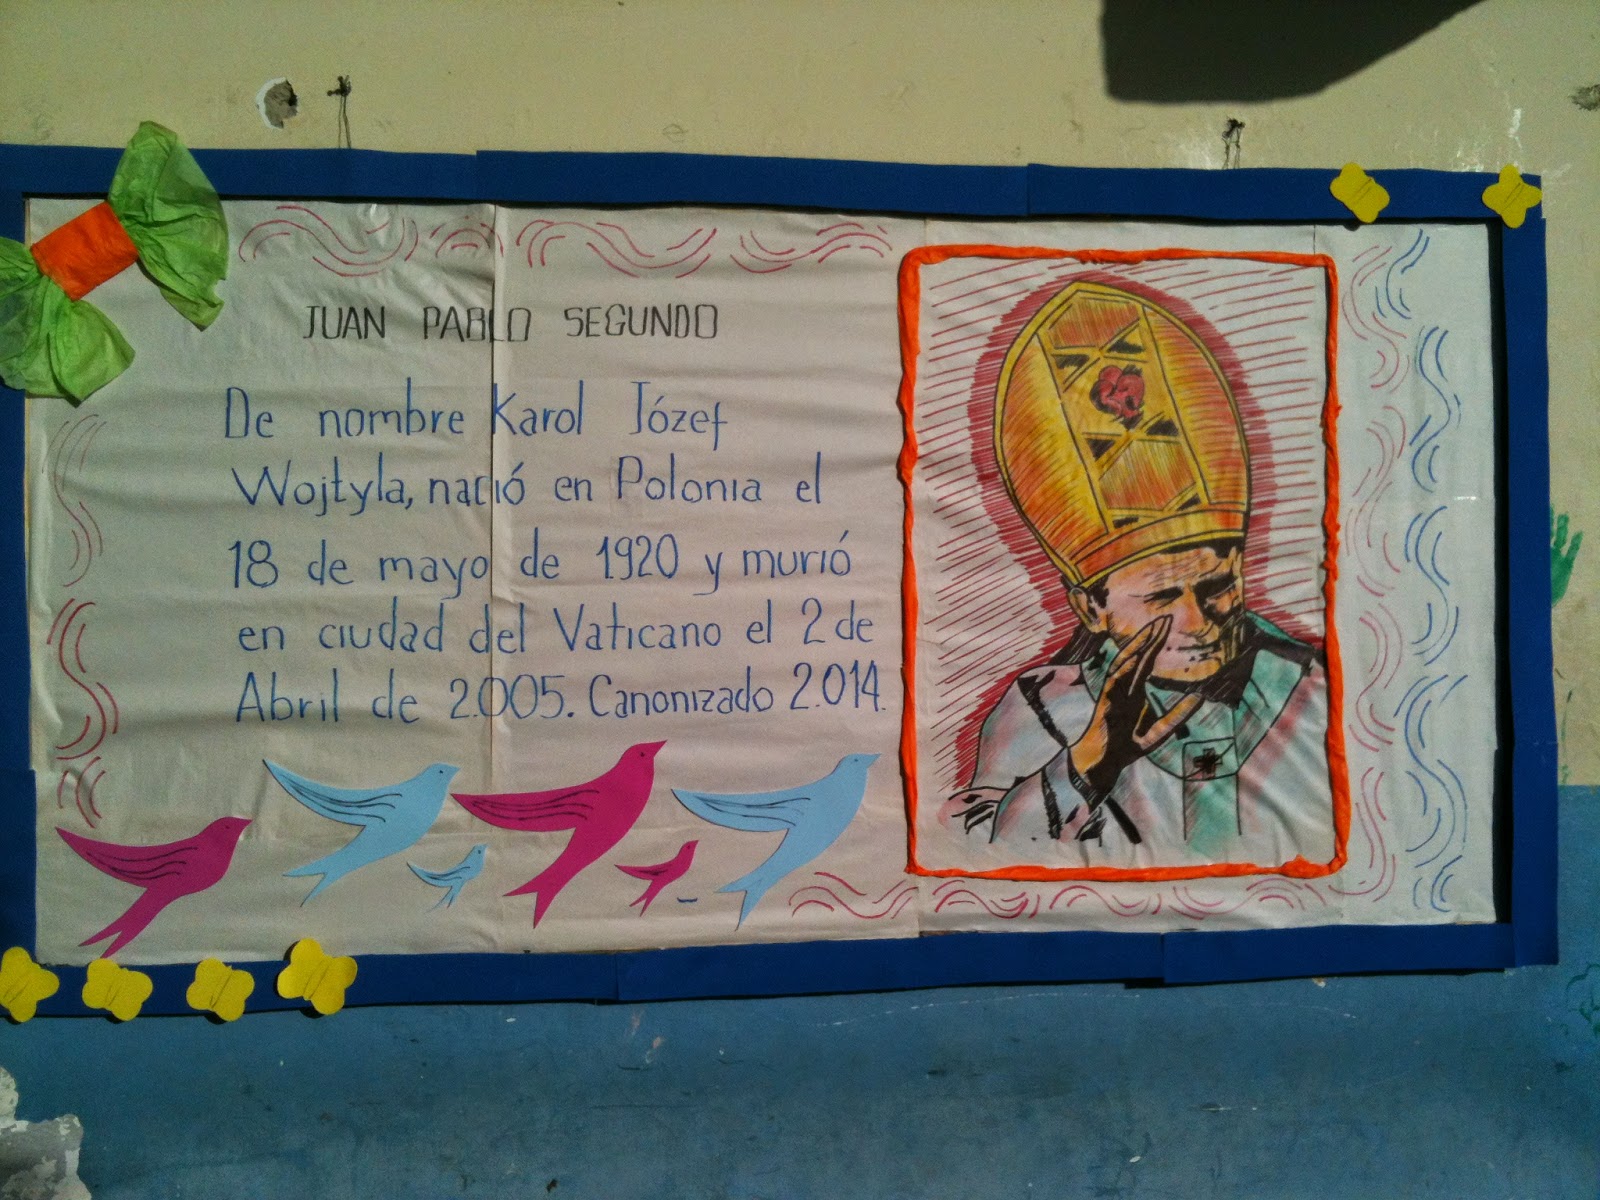 JUAN PABLO SEGUNDO
De nombre Karol Józef
Wojtyla, nació en Polonia el
18 de mayo de 1920 y murió
en ciudad del Vaticano el 2 de
Abril de 2.005. Canonizado 2.014.